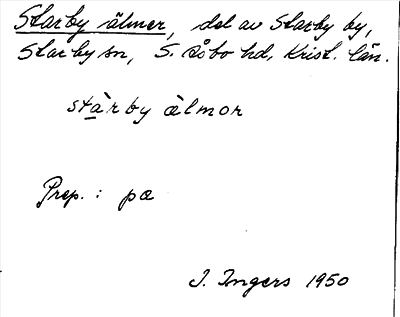 Starby älmer, del av Starby by,
Starby sn, S. Åsbo hd, Krist. län.
stàrby àlmor
Prep. : pæ
I. Ingers 1950